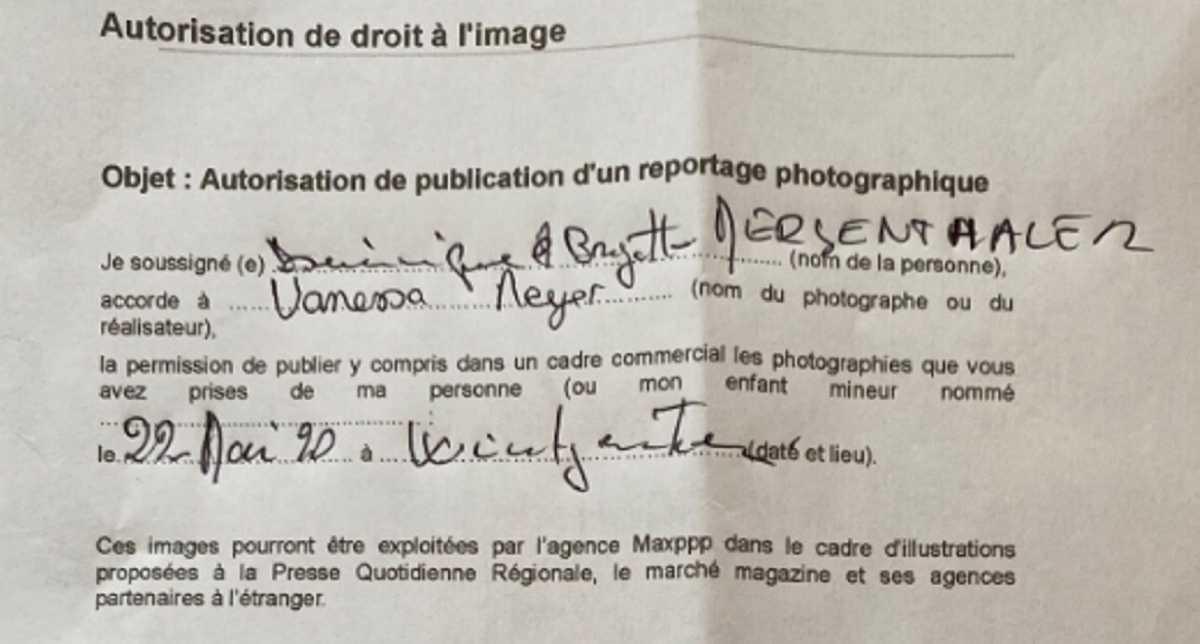 Autorisation de droit à l'image
Objet : Autorisation de publication d'un reportage photographique
Je soussigné (e) Dominique & Brigitte MERGENTHALER (nom de la personne),
accorde à ...... Vanessa Meyer ........... (nom du photographe ou du
réalisateur),
la permission de publier y compris dans un cadre commercial les photographies que vous
avez prises de ma personne (ou mon enfant mineur nommé
le 22 Mai 20 à (daté et lieu).
Ces images pourront être exploitées par l'agence Maxppp dans le cadre d'illustrations
proposées à la Presse Quotidienne Régionale, le marché magazine et ses agences
partenaires à l'étranger.